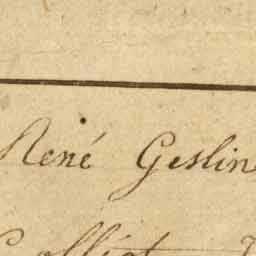 René Geslin